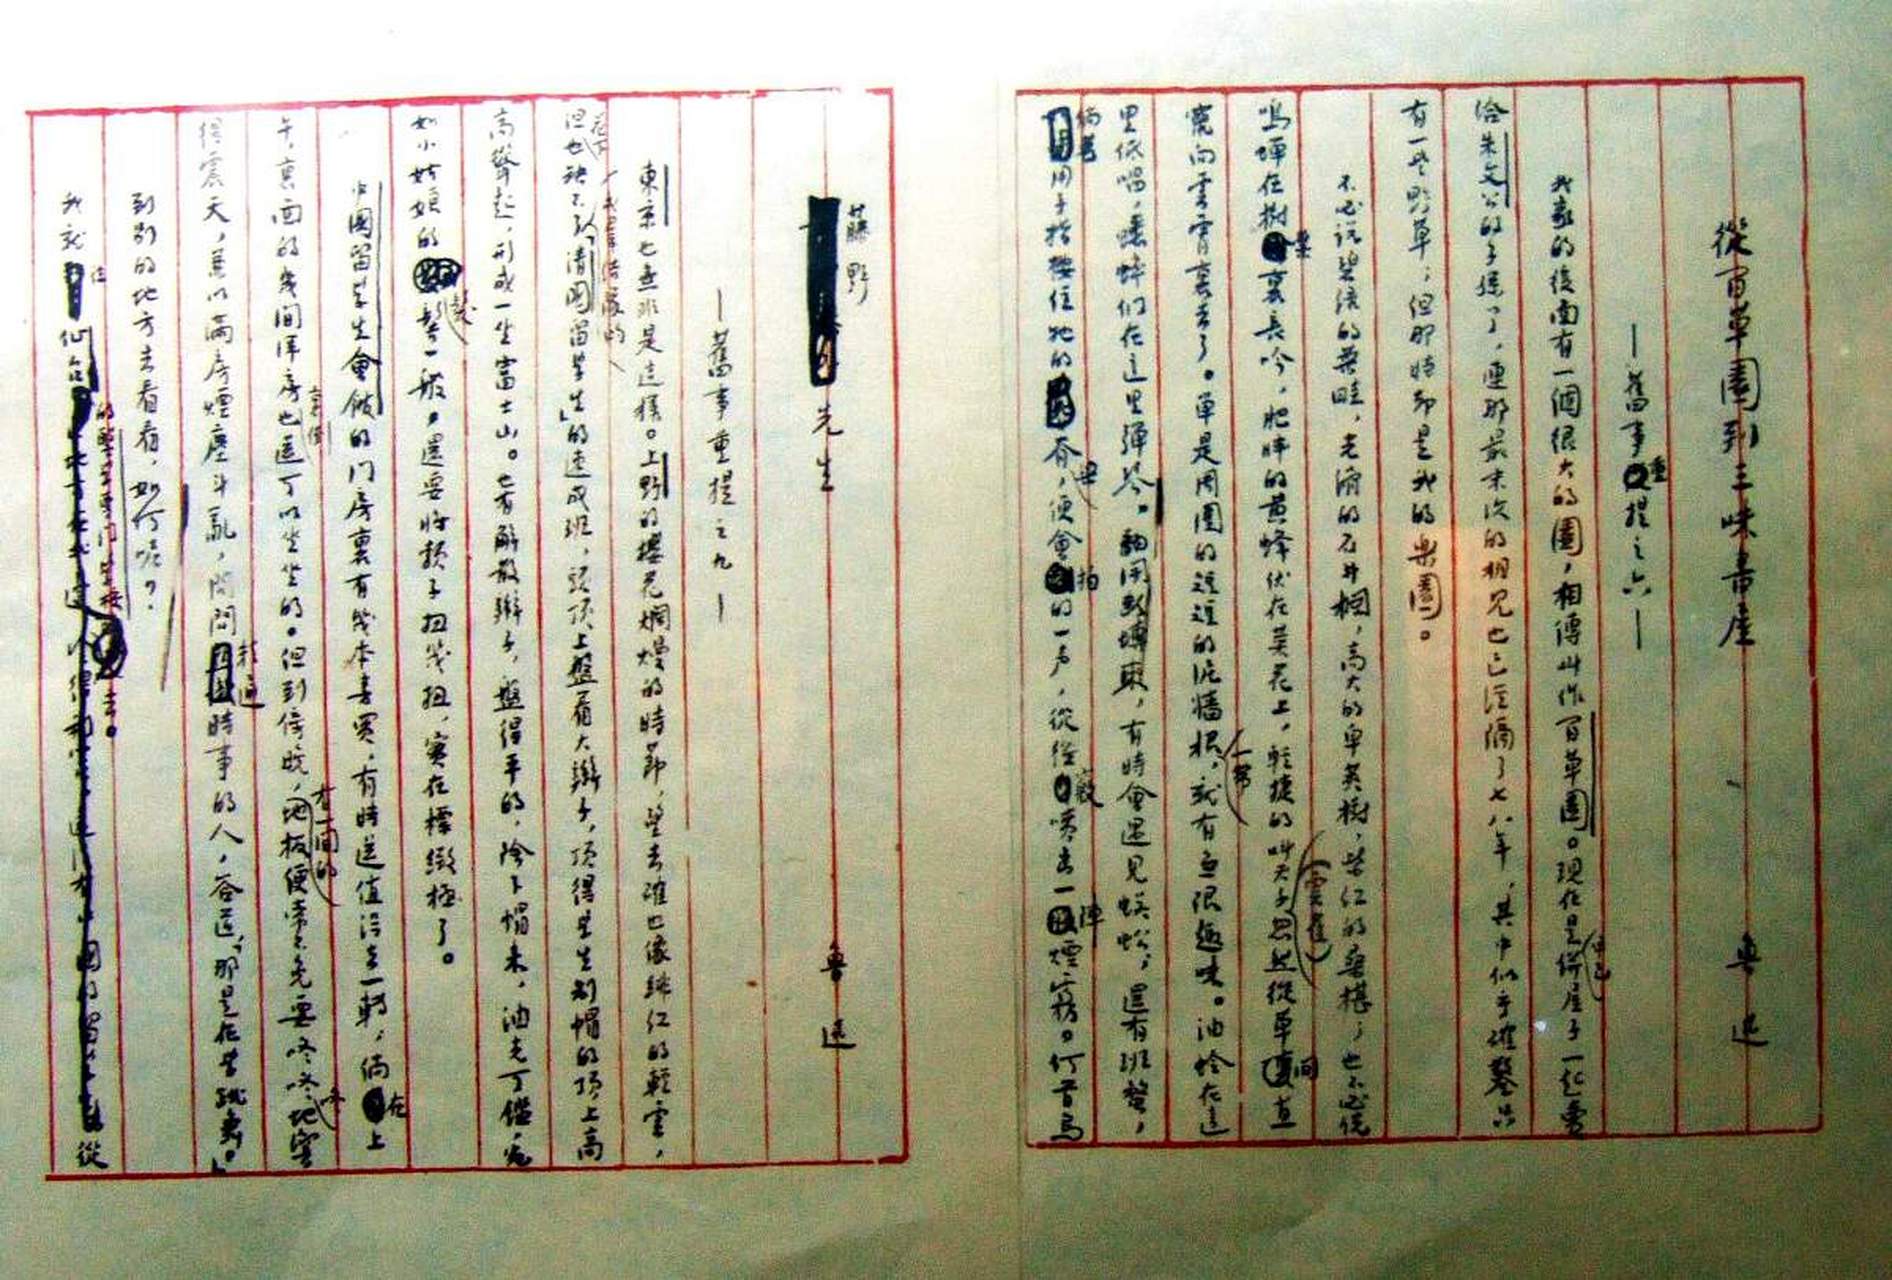 從百草園到三味書屋
魯迅
—舊事重提之六—
我家的後面有一個很大的園，相傳叫作百草園。現在是早已併屋子一起賣
給朱文公的子孫了，連那最末次的相見也已經隔了七八年，其中似乎確鑿只
有一些野草；但那時却是我的樂園。
不必說碧綠的菜畦，光滑的石井欄，高大的皁莢樹，紫紅的桑椹；也不必說
鳴蟬在樹葉裏長吟，肥胖的黃蜂伏在菜花上，輕捷的叫天子（雲雀）忽然從草間直
竄向雲霄裏去了。單是周圍的短短的泥牆根一帶，就有無限趣味。油蛉在這
里低唱，蟋蟀们在這里彈琴。翻開斷磚來，有時會遇見蜈蚣；還有斑蝥，
倘若用手指按住牠的脊梁，便會拍的一声，從後竅噴出一陣煙霧。何首烏
藤野先生
魯迅
—舊事重提之九—
東京也無非是這樣。上野的櫻花爛熳的時節，望去確也像緋红的輕雲，
但花下也缺不了成羣結隊的「清國留學生」的速成班，頭頂上盤着大辮子，頂得學生制帽的頂上高
高聳起，形成一坐富士山。也有解散辮子，盤得平的，除下帽來，油光可鑑，宛
如小姑娘的髮髻一般，還要將頸子扭幾扭，實在標緻極了。
中國留學生會館的门房裏有幾本書買，有時還值得去一轉；倘在上
午，裏面的幾間洋房裏倒也還可以坐坐的。但到傍晚，有一間的地板便常不免要咚咚咚地響
得震天，兼以滿房煙塵斗亂；問問精通時事的人，答道，「那是在學跳舞。」
到别的地方去看看，如何呢？
我就往仙台的醫學專门學校去。從